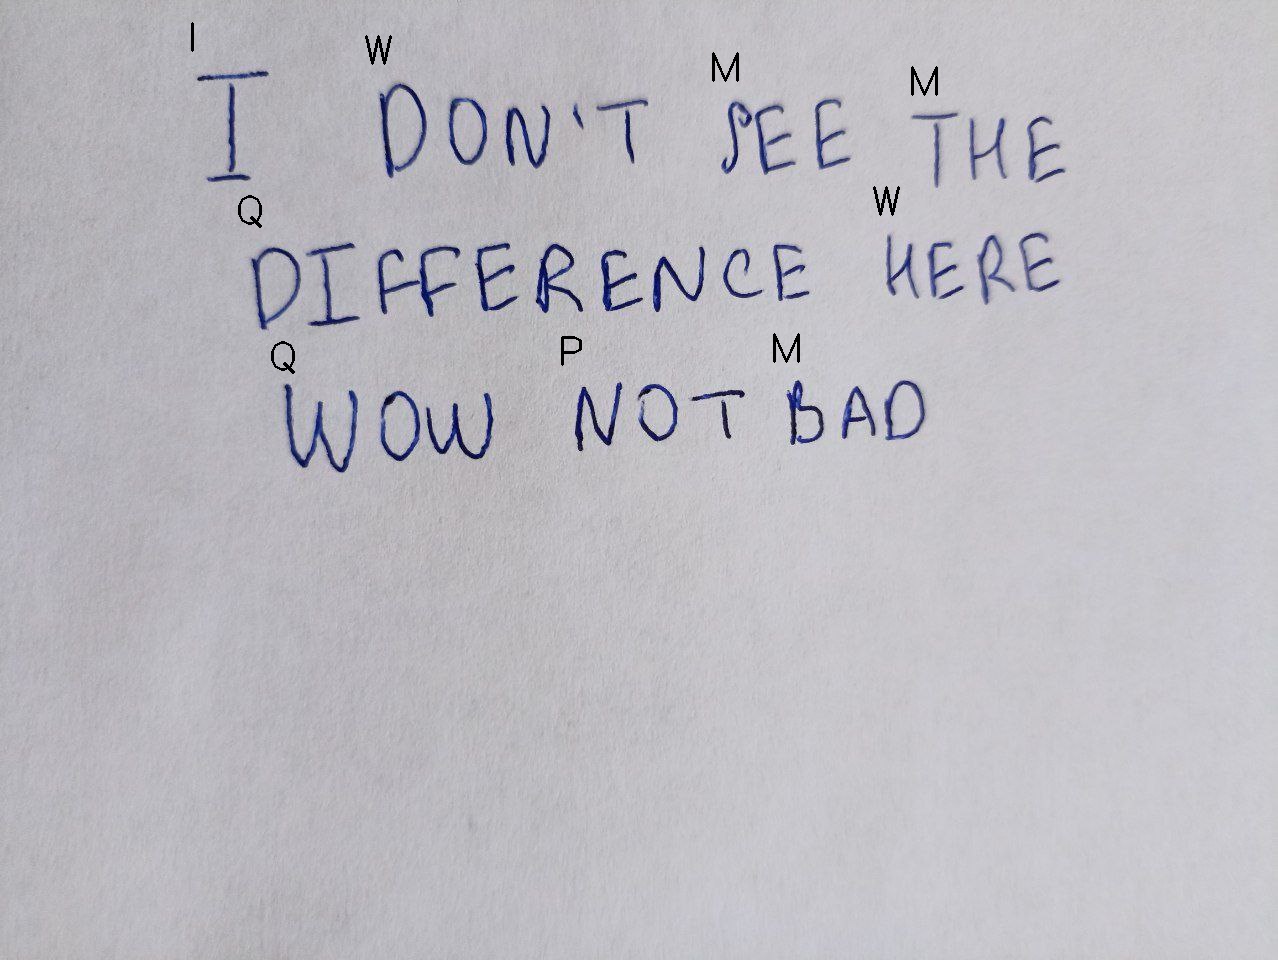 I W M M
I DON'T SEE THE
Q W
DIFFERENCE HERE
Q P M
WOW NOT BAD